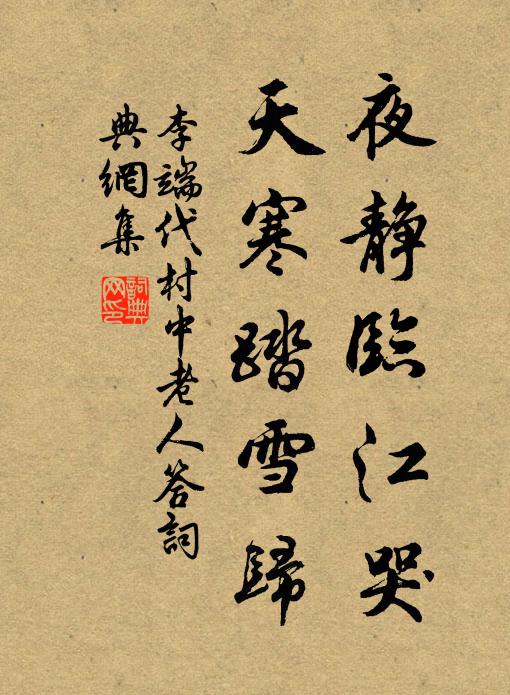 夜静臨江哭
天寒踏雪歸
李端代村中老人答詞
典網集
詞典
网印